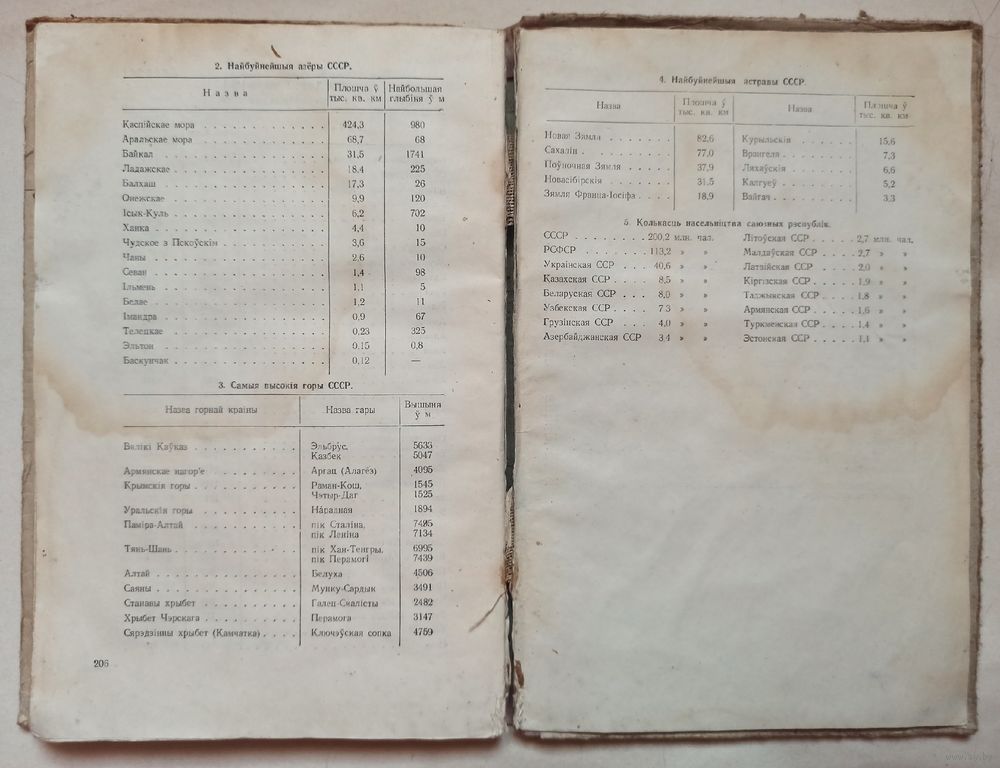 2. Найбуйнейшыя азёры СССР.
Назва Плошча ў тыс. кв. км Найбольшая глыбіня ў м
Каспійскае мора 424,3 980
Аральскае мора 68,7 68
Байкал 31,5 1741
Ладажскае 18,4 225
Балхаш 17,3 26
Онежскае 9,9 120
Ісык-Куль 6,2 702
Ханка 4,4 10
Чудское з Пскоўскім 3,6 15
Чаны 2,6 10
Севан 1,4 98
Ільмень 1,1 5
Белае 1,2 11
Імандра 0,9 67
Телецкае 0,23 325
Эльтон 0,15 0,8
Баскунчак 0,12 —
3. Самыя высокія горы СССР.
Назва горнай краіны Назва гары Вышыня ў м
Вялікі Каўказ Эльбрус, 5633
Казбек 5047
Армянскае нагор'е Арагац (Алагёз) 4095
Крымскія горы Раман-Кош, 1545
Чэтыр-Даг 1525
Уральскія горы Народная 1894
Паміра-Алтай пік Сталіна, 7495
пік Леніна 7134
Тянь-Шань пік Хан-Тенгры, 6995
пік Перамогі 7439
Алтай Белуха 4506
Саяны Мунку-Сардык 3491
Станавы хрыбет Галец-Скалісты 2482
Хрыбет Чэрскага Перамога 3147
Сярэдзінны хрыбет (Камчатка) Ключэўская сопка 4759
206
4. Найбуйнейшыя астравы СССР.
Назва Плошча ў тыс. кв. км Назва Плошча ў тыс. кв. км
Новая Зямля 82,6 Курыльскія 15,6
Сахалін 77,0 Врангеля 7,3
Поўночная Зямля 37,9 Ляхаўскія 6,6
Новасібірскія 31,5 Калгуеў 5,2
Зямля Франца-Іосіфа 18,9 Вайгач 3,3
5. Колькасць насельніцтва саюзных рэспублік.
СССР 200,2 млн. чал. Літоўская ССР 2,7 млн. чал.
РСФСР 113,2 » » Малдаўская ССР 2,7 » »
Украінская ССР 40,6 » » Латвійская ССР 2,0 » »
Казахская ССР 8,5 » » Кіргізская ССР 1,9 » »
Беларуская ССР 8,0 » » Таджыкская ССР 1,8 » »
Узбекская ССР 7,3 » » Армянская ССР 1,6 » »
Грузінская ССР 4,0 » » Туркменская ССР 1,4 » »
Азербайджанская ССР 3,4 » » Эстонская ССР 1,1 » »